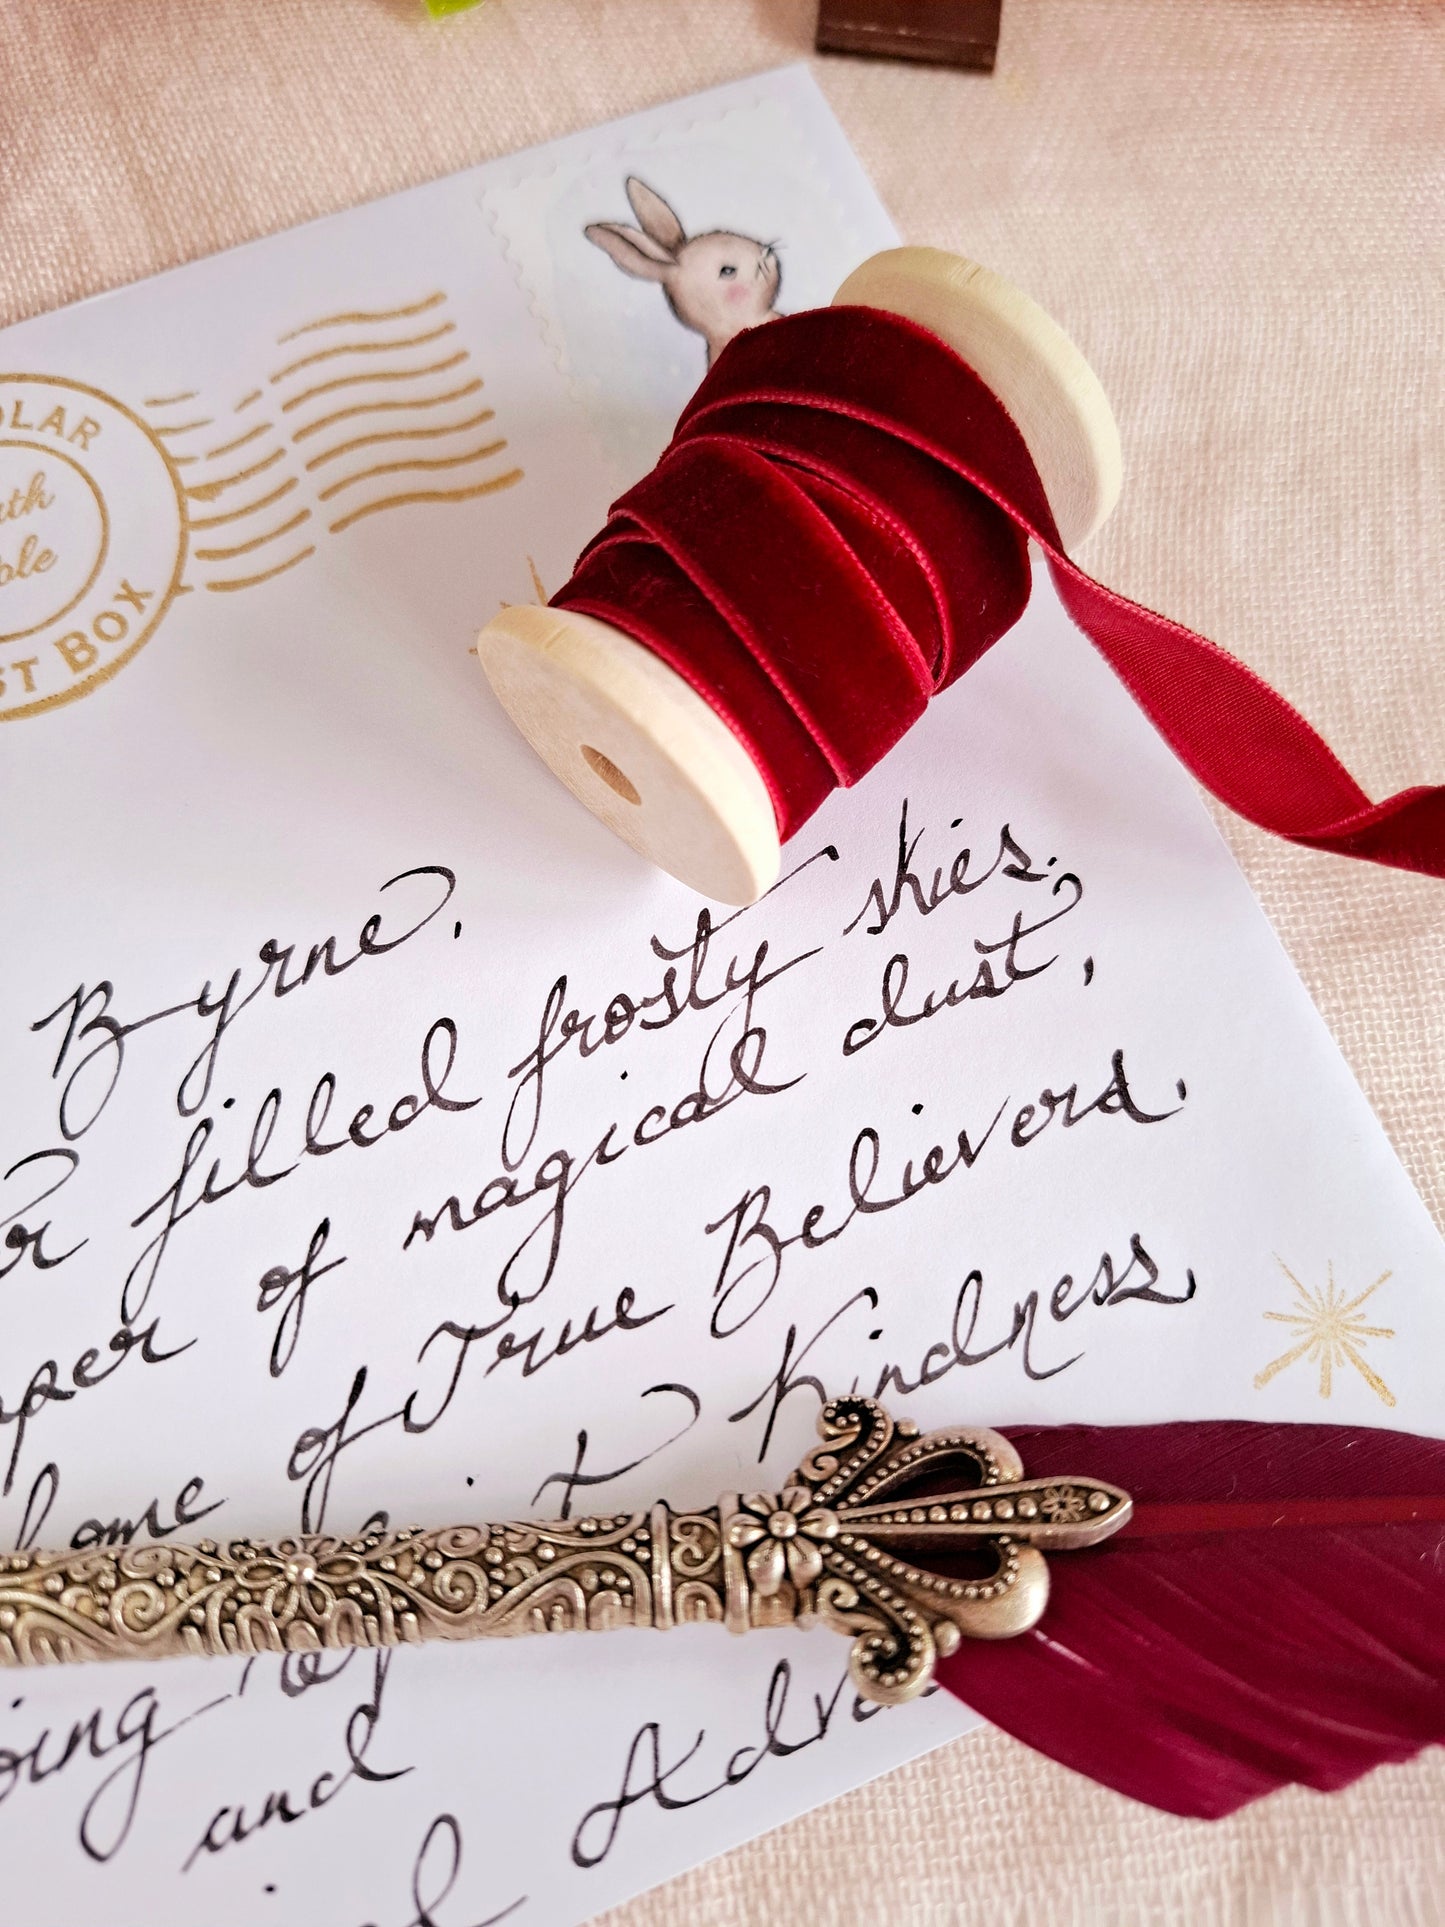 OLAR
th
ole
ST BOX
Byrne,
r filled frosty skies.
per of magical dust,
ome of True Believers,
Kindness,
oing
and
Adve